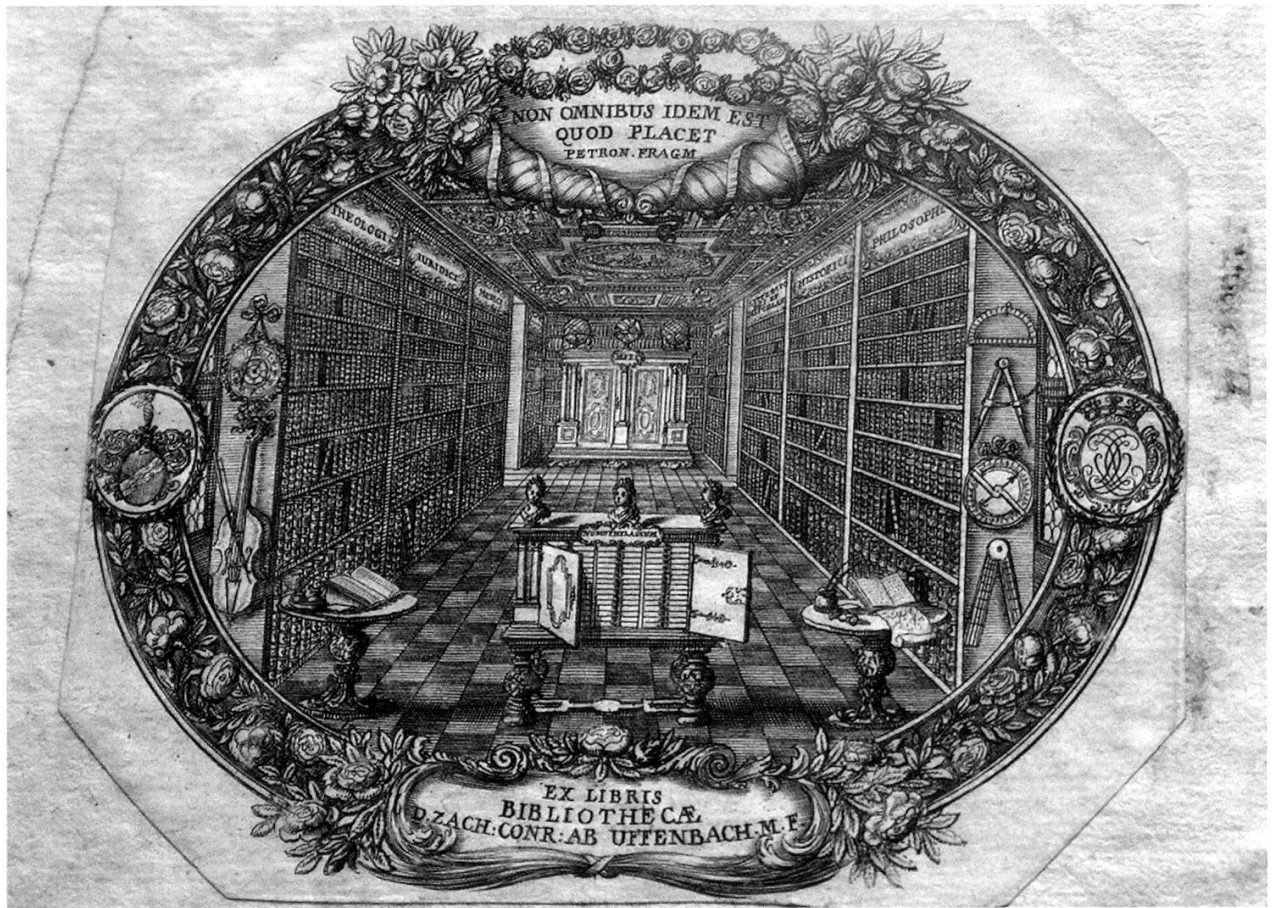 NON OMNIBUS IDEM EST
QUOD PLACET
PETRON. FRAGM
THEOLOGI
IURIDICI
MEDICI
HISTORICI
PHILOSOPHI
EX LIBRIS
BIBLIOTHECÆ
D. ZACH: CONR: AB UFFENBACH. M. F.